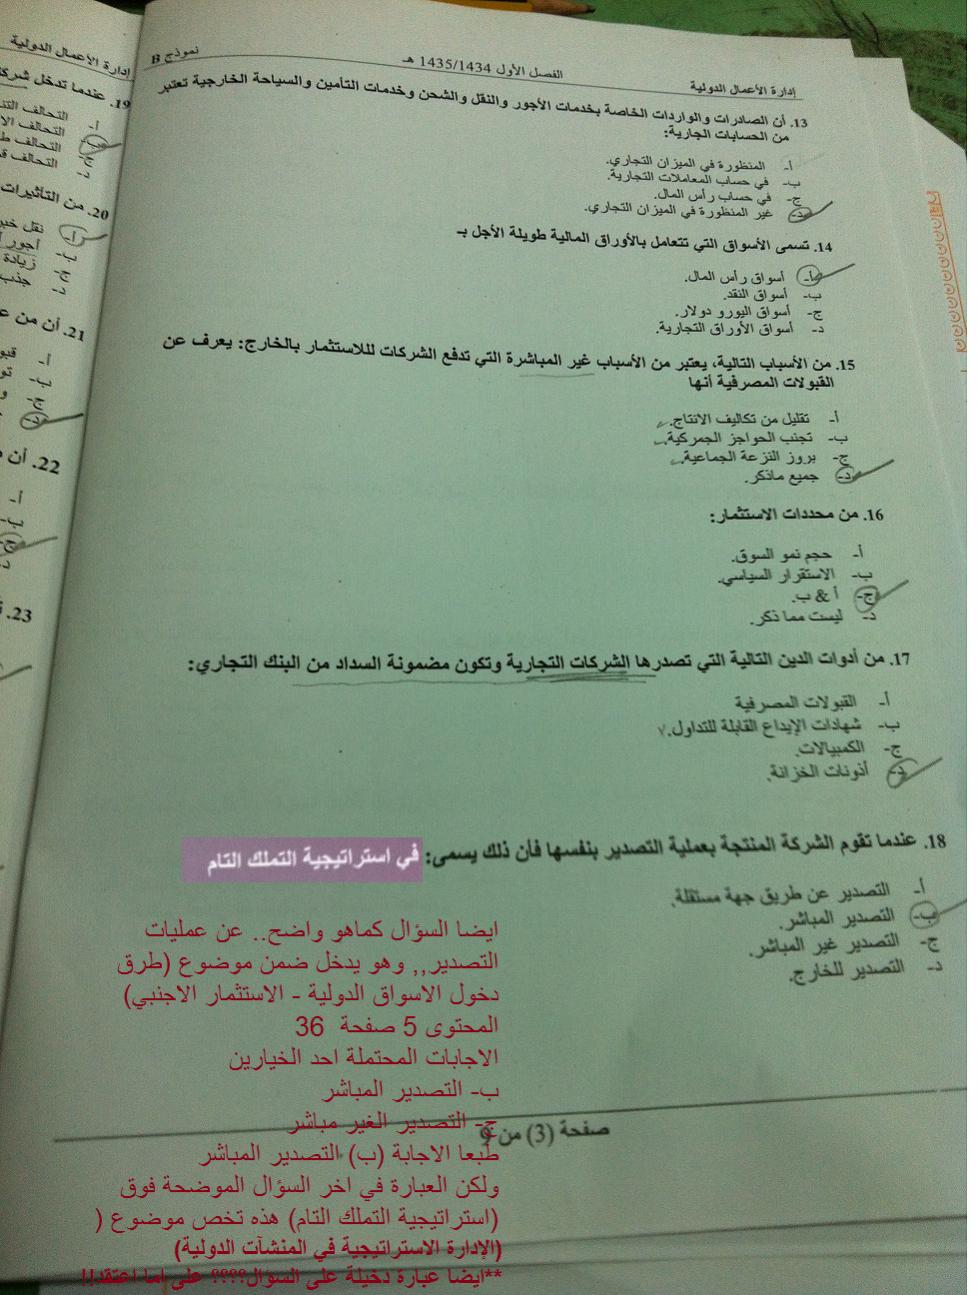 إدارة الأعمال الدولية
الفصل الأول 1435/1434 هـ
نموذج B
13. أن الصادرات والواردات الخاصة بخدمات الأجور والنقل والشحن وخدمات التأمين والسياحة الخارجية تعتبر
من الحسابات الجارية:
أ- المنظورة في الميزان التجاري.
ب- في حساب المعاملات التجارية.
ج- في حساب رأس المال.
د- غير المنظورة في الميزان التجاري.
14. تسمى الأسواق التي تتعامل بالأوراق المالية طويلة الأجل بـ
أ- أسواق رأس المال.
ب- أسواق النقد.
ج- أسواق اليورو دولار.
د- أسواق الأوراق التجارية.
15. من الأسباب التالية، يعتبر من الأسباب غير المباشرة التي تدفع الشركات للاستثمار بالخارج: يعرف عن
القبولات المصرفية أنها
أ- تقليل من تكاليف الانتاج.
ب- تجنب الحواجز الجمركية.
ج- بروز النزعة الجماعية.
د- جميع ماذكر.
16. من محددات الاستثمار:
أ- حجم نمو السوق.
ب- الاستقرار السياسي.
ج- أ & ب.
د- ليست مما ذكر.
17. من أدوات الدين التالية التي تصدرها الشركات التجارية وتكون مضمونة السداد من البنك التجاري:
أ- القبولات المصرفية
ب- شهادات الإيداع القابلة للتداول.
ج- الكمبيالات.
د- أذونات الخزانة.
18. عندما تقوم الشركة المنتجة بعملية التصدير بنفسها فأن ذلك يسمى: في استراتيجية التملك التام
أ- التصدير عن طريق جهة مستقلة.
ب- التصدير المباشر.
ج- التصدير غير المباشر.
د- التصدير للخارج.
ايضا السؤال كماهو واضح.. عن عمليات
التصدير,, وهو يدخل ضمن موضوع (طرق
دخول الاسواق الدولية - الاستثمار الاجنبي)
المحتوى 5 صفحة 36
الاجابات المحتملة احد الخيارين
ب- التصدير المباشر
ج- التصدير الغير مباشر
طبعا الاجابة (ب) التصدير المباشر
ولكن العبارة في اخر السؤال الموضحة فوق
(استراتيجية التملك التام) هذه تخص موضوع (
(الإدارة الاستراتيجية في المنشآت الدولية)
**ايضا عبارة دخيلة على السؤال؟؟؟؟ على ما اعتقد!!
صفحة (3) من 9
إدارة الأعمال الدولية
19. عندما تدخل شركة
أ- التحالف
ب- التحالف
ج- التحالف
د- التحالف
20. من التأثيرات
أ- نقل
ب- أجور
ج- زيادة
د- جذب
21. أن من
أ-
ب-
ج-
د-
22. أن
أ-
ب-
ج-
د-
23.